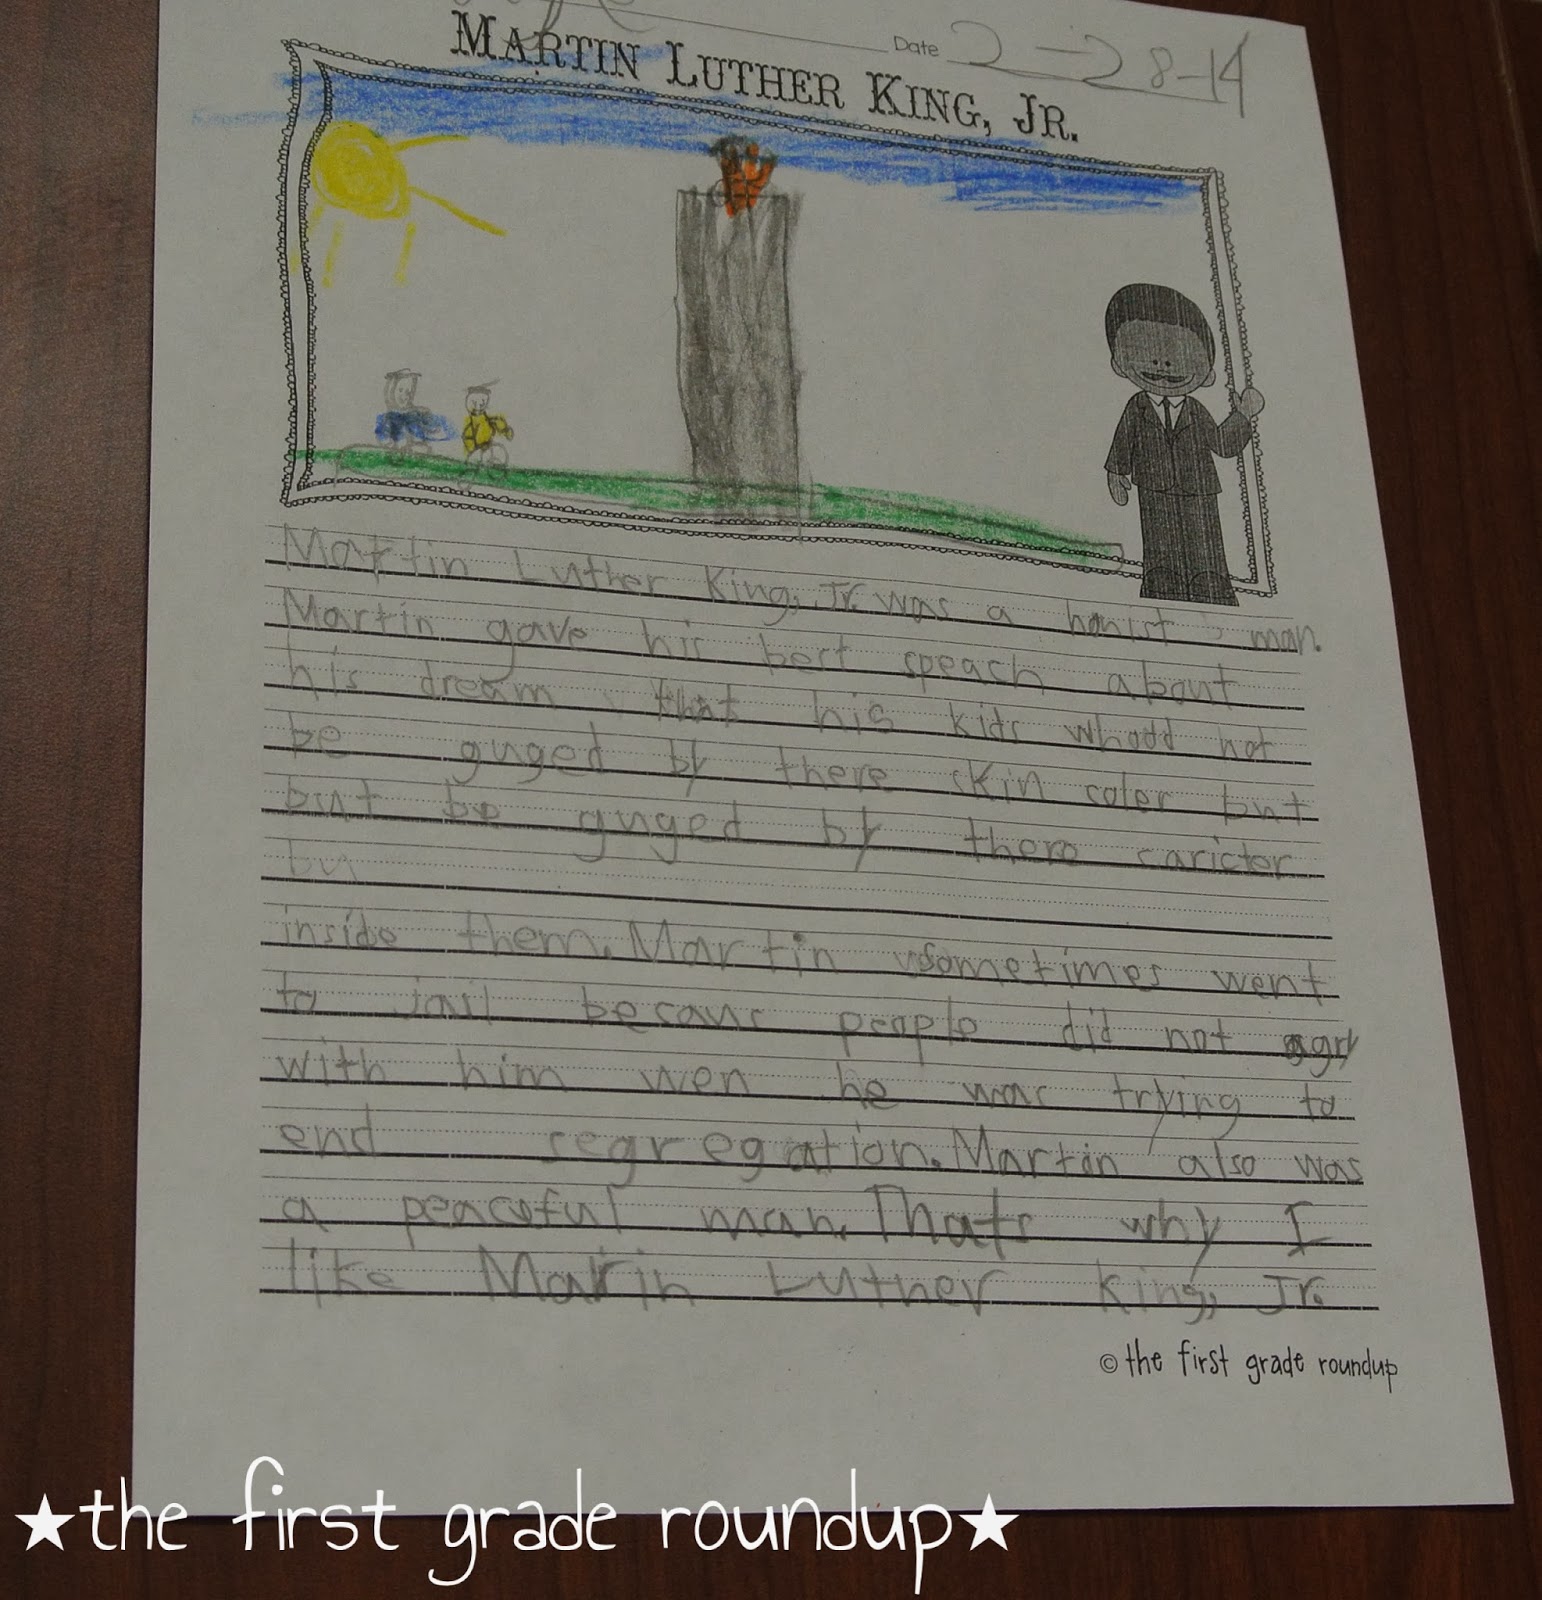 Date 2-28-14
MARTIN LUTHER KING, JR.
Martin Luther King, Jr. was a honist man.
Martin gave his best speach about
his dream that his kids whodd not
be guged by there skin coler but
but be guged by there caricter
but
inside them. Martin sometimes went
to jail becaus people did not agry
with him wen he was trying to
end segregation. Martin also was
a peaceful man. Thats why I
like Martin Luther King, Jr.
© the first grade roundup
★the first grade roundup★